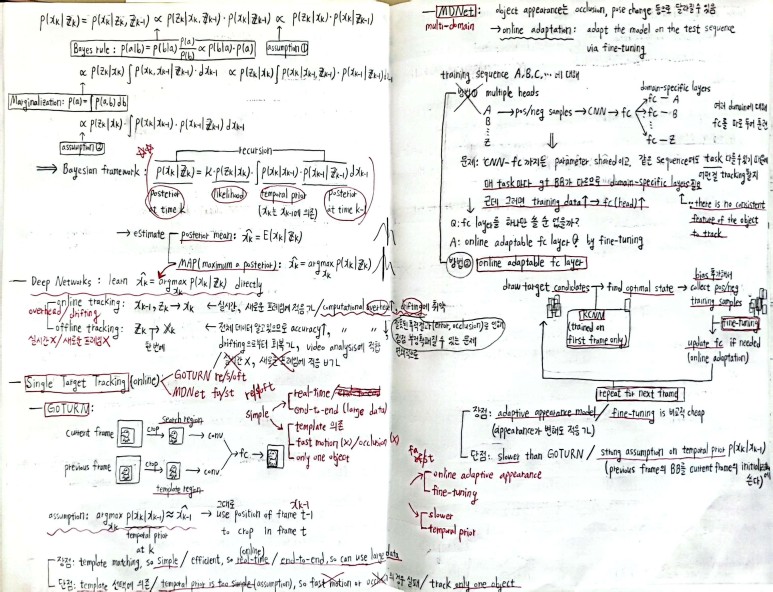 p(xk|Zk) = p(xk|zk, Zk-1) ∝ p(zk|xk, Zk-1)·p(xk|Zk-1) ∝ p(zk|xk)·p(xk|Zk-1)
Bayes rule: p(a|b) = p(b|a) p(a)/p(b) ∝ p(b|a)·p(a)
assumption ①
∝ p(zk|xk)·∫p(xk, xk-1|Zk-1)·dxk-1 ∝ p(zk|xk)∫p(xk|xk-1, Zk-1)·p(xk-1|Zk-1)dxk-1
Marginalization: p(a) = ∫p(a,b)db
∝ p(zk|xk)·∫p(xk|xk-1)·p(xk-1|Zk-1)dxk-1
assumption ②
recursion
⇒ Bayesian framework: p(xk|Zk) = K·p(zk|xk)·∫p(xk|xk-1)·p(xk-1|Zk-1)dxk-1
posterior at time k
likelihood
temporal prior
(xk는 xk-1에 의존)
posterior at time k-1
→ estimate
posterior mean: x̂k = E(xk|Zk)
MAP(maximum a posterior): x̂k = argmax xk p(xk|Zk)
— Deep Networks: learn x̂k = argmax xk p(xk|Zk) directly
online tracking: xk-1, zk → xk ← 실시간, 새로운 프레임에 적응 가 / computational overhead↑, drifting에 취약
overhead/drifting
offline tracking: Zk → Xk ← 전체 데이터 알고있으므로 accuracy↑, 〃 〃
한번에
실시간 X / 새로운 프레임 X
drifting으로부터 회복 가, video analysis에 적합
실시간 X, 새로운 프레임에 적응 불가
— Single Target Tracking (online)
GOTURN re/s/oft
MDNet fa/st
re/s/oft
— GOTURN:
simple
real-time
end-to-end (large data)
template 의존
fast motion (x)/occlusion (x)
only one object
search region
current frame
crop
conv
fc
previous frame
crop
conv
template region
assumption: argmax xk p(xk|xk-1) ≈ x̂k-1
temporal prior at k
그대로 xk-1
→ use position of frame t-1
to crop in frame t
(online)
장점: template matching, so simple / efficient, so real-time / end-to-end, so can use large data
단점: template 선택에 의존 / temporal prior is too simple (assumption), so fast motion or / track only one object
— MDNet: object appearance는 occlusion, pose change 등으로 달라질 수 있음
multi-domain
→ online adaptation: adapt the model on the test sequence
via fine-tuning
training sequence A, B, C, ... 에 대해
방법① multiple heads
domain-specific layers
A
B
⋮
Z
→ pos/neg samples → CNN → fc
fc — A
fc — B
⋮
fc — Z
여러 domain에 대해
fc를 따로 두어 훈련
문제: CNN-fc까지는 parameter shared이고, 같은 sequence여도 task
매 task마다 gt BB가 다르므로 domain-specific layers
근데 그러면 training data↑ → fc (head)↑
∴ there is no consistent
feature of the object
to track
Q: fc layer를 하나만 쓸 순 없을까?
A: online adaptable fc layer by fine-tuning
방법② online adaptable fc layer
draw target candidates → find optimal state → collect pos/neg
training samples
CNN
(trained on
first frame only)
fine-tuning
update fc if needed
(online adaptation)
repeat for next frame
장점: adaptive appearance model / fine-tuning is 비교적 cheap
(appearance가 변해도 적응 가)
단점: slower than GOTURN / strong assumption on temporal prior p(xk|xk-1)
(previous frame의 BB를 current frame의
fa/st
online adaptive appearance
fine-tuning
slower
temporal prior